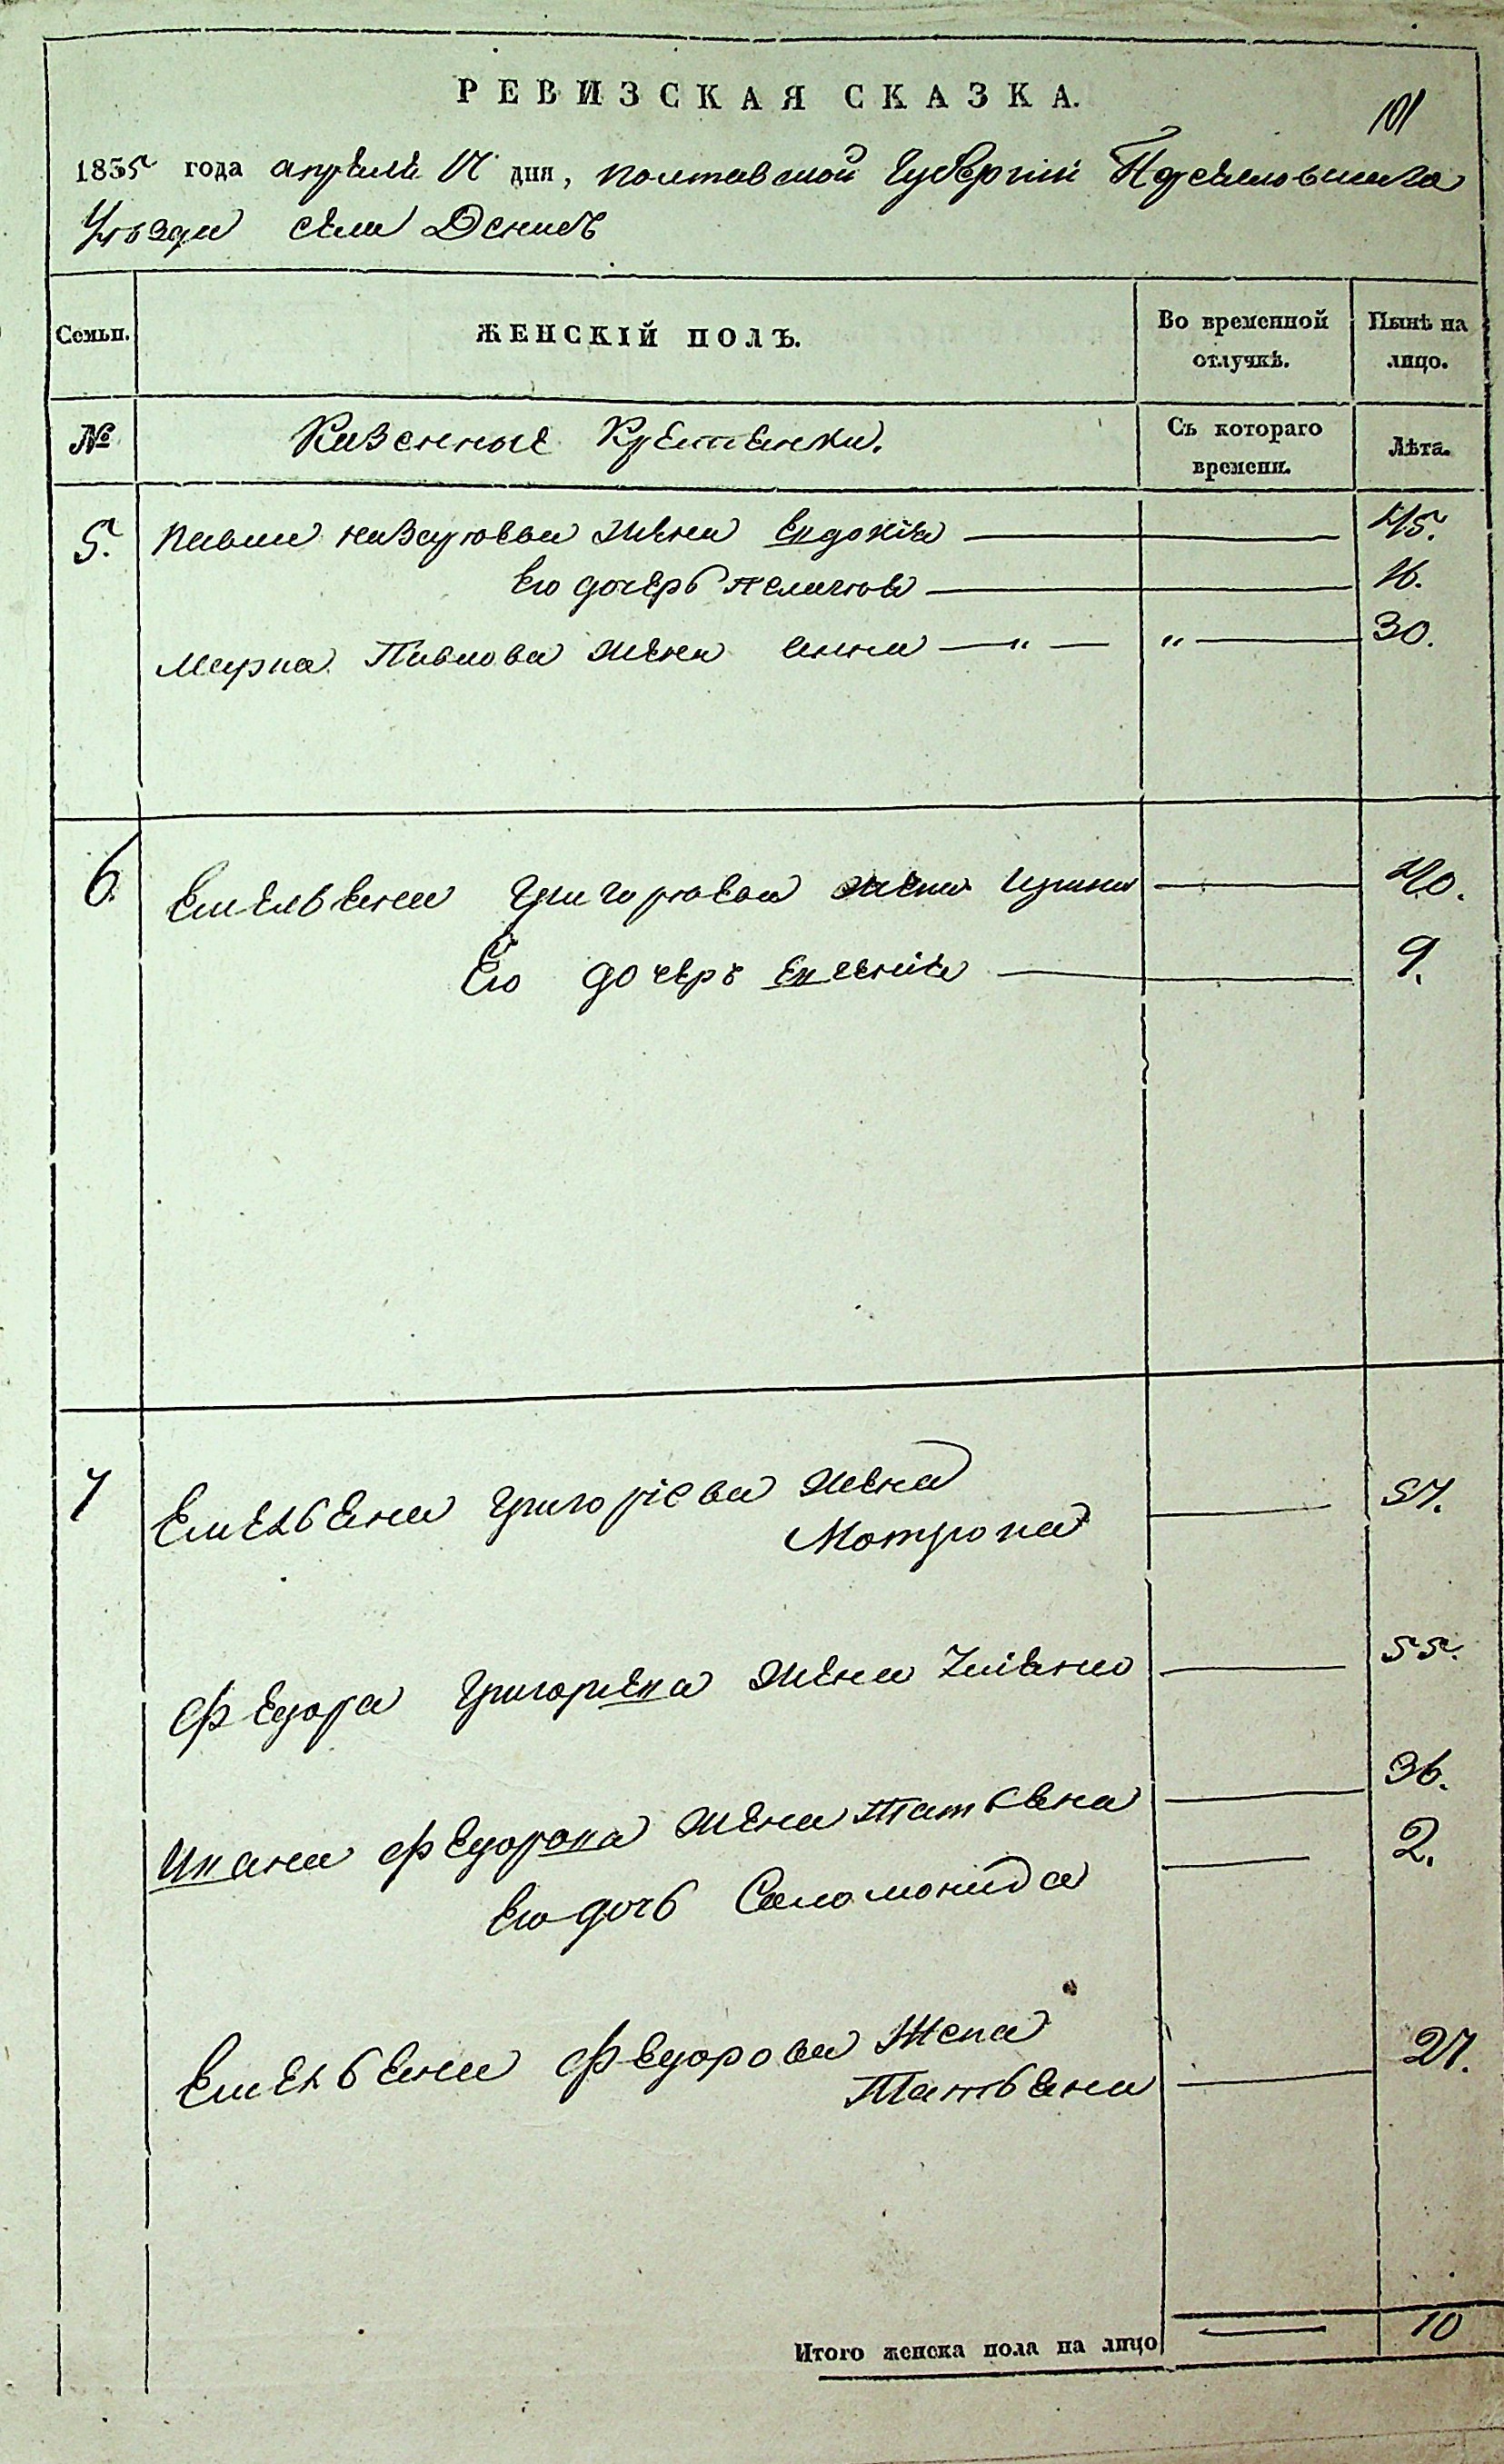 РЕВИЗСКАЯ СКАЗКА.
101
1835 года апреля 17 дня, полтавской Губернии Переясловскаго
Уезда села Дениск
Семьи. ЖЕНСКІЙ ПОЛЪ. Во временной отлучкѣ. Нынѣ на лицо.
№ Казенные Крестянки. Съ котораго времени. Лѣта.
5. Павла Назарова жена Евдокія 45.
Его дочерь Пелагея 16.
Марка Павлова жена анна — „ — „ 30.
6. Емельяна Григорьева жена Ирина 40.
Его дочерь Евгенія 9.
7 Емельяна Григоріева жена 57.
Мотрона
Федора Григорьева жена Уліяна 55.
Ивана Федорова жена Татяна 36.
Его дочь Саломонида 2.
Емельяна Федорова Жена
Татьяна 27.
Итого женска пола на лицо 10